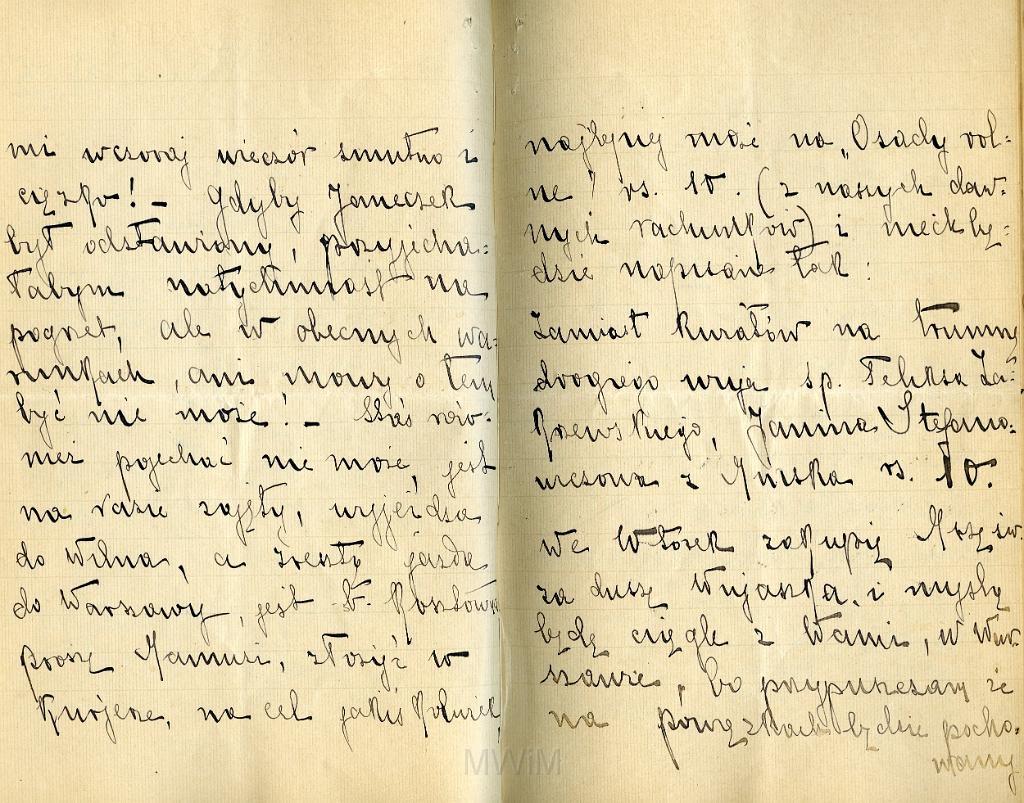 mi wczoraj wieczór smutno i
ciężko! – Gdyby Janeczek
był odstawiony, przyjecha=
łabym natychmiast na
pogrzeb, ale w obecnych wa=
runkach, ani mowy o tem
być nie może! – Staś rów=
nież pojechać nie może, jest
na razie zajęty, wyjeżdża
do Wilna, a zresztą jazda
do Warszawy, jest b. kosztowną
proszę Mamusi, złożyć w
Kurjerze, na cel jakiś
najlepiej może na „Osady rol=
ne" rs. 10. (z naszych daw=
nych rachunków) i niech bę=
dzie napisane tak:
Zamiast kwiatów na trumnę
drogiego wuja śp. Feliksa Za=
krzewskiego, Janina Stefano=
wiczowa z Mińska rs. 10.
We Wtorek zakupię Mszę św.
za duszę Wujaszka, i myślą
będę ciągle z Wami, w War=
szawie, bo przypuszczam że
na Powązkach będzie pocho=
wany
MWiM